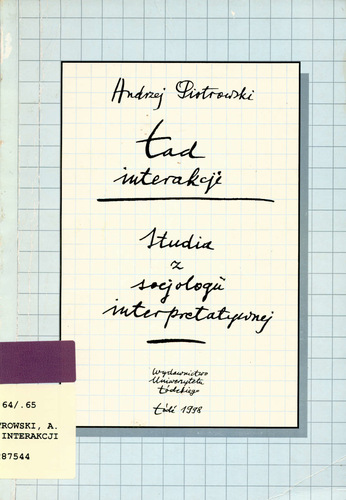 Andrzej Piotrowski
Ład
interakcji
Studia
z
socjologii
interpretatywnej
Wydawnictwo
Uniwersytetu
Łódzkiego
Łódź 1998
64/.65
TROWSKI, A.
INTERAKCJI
87544